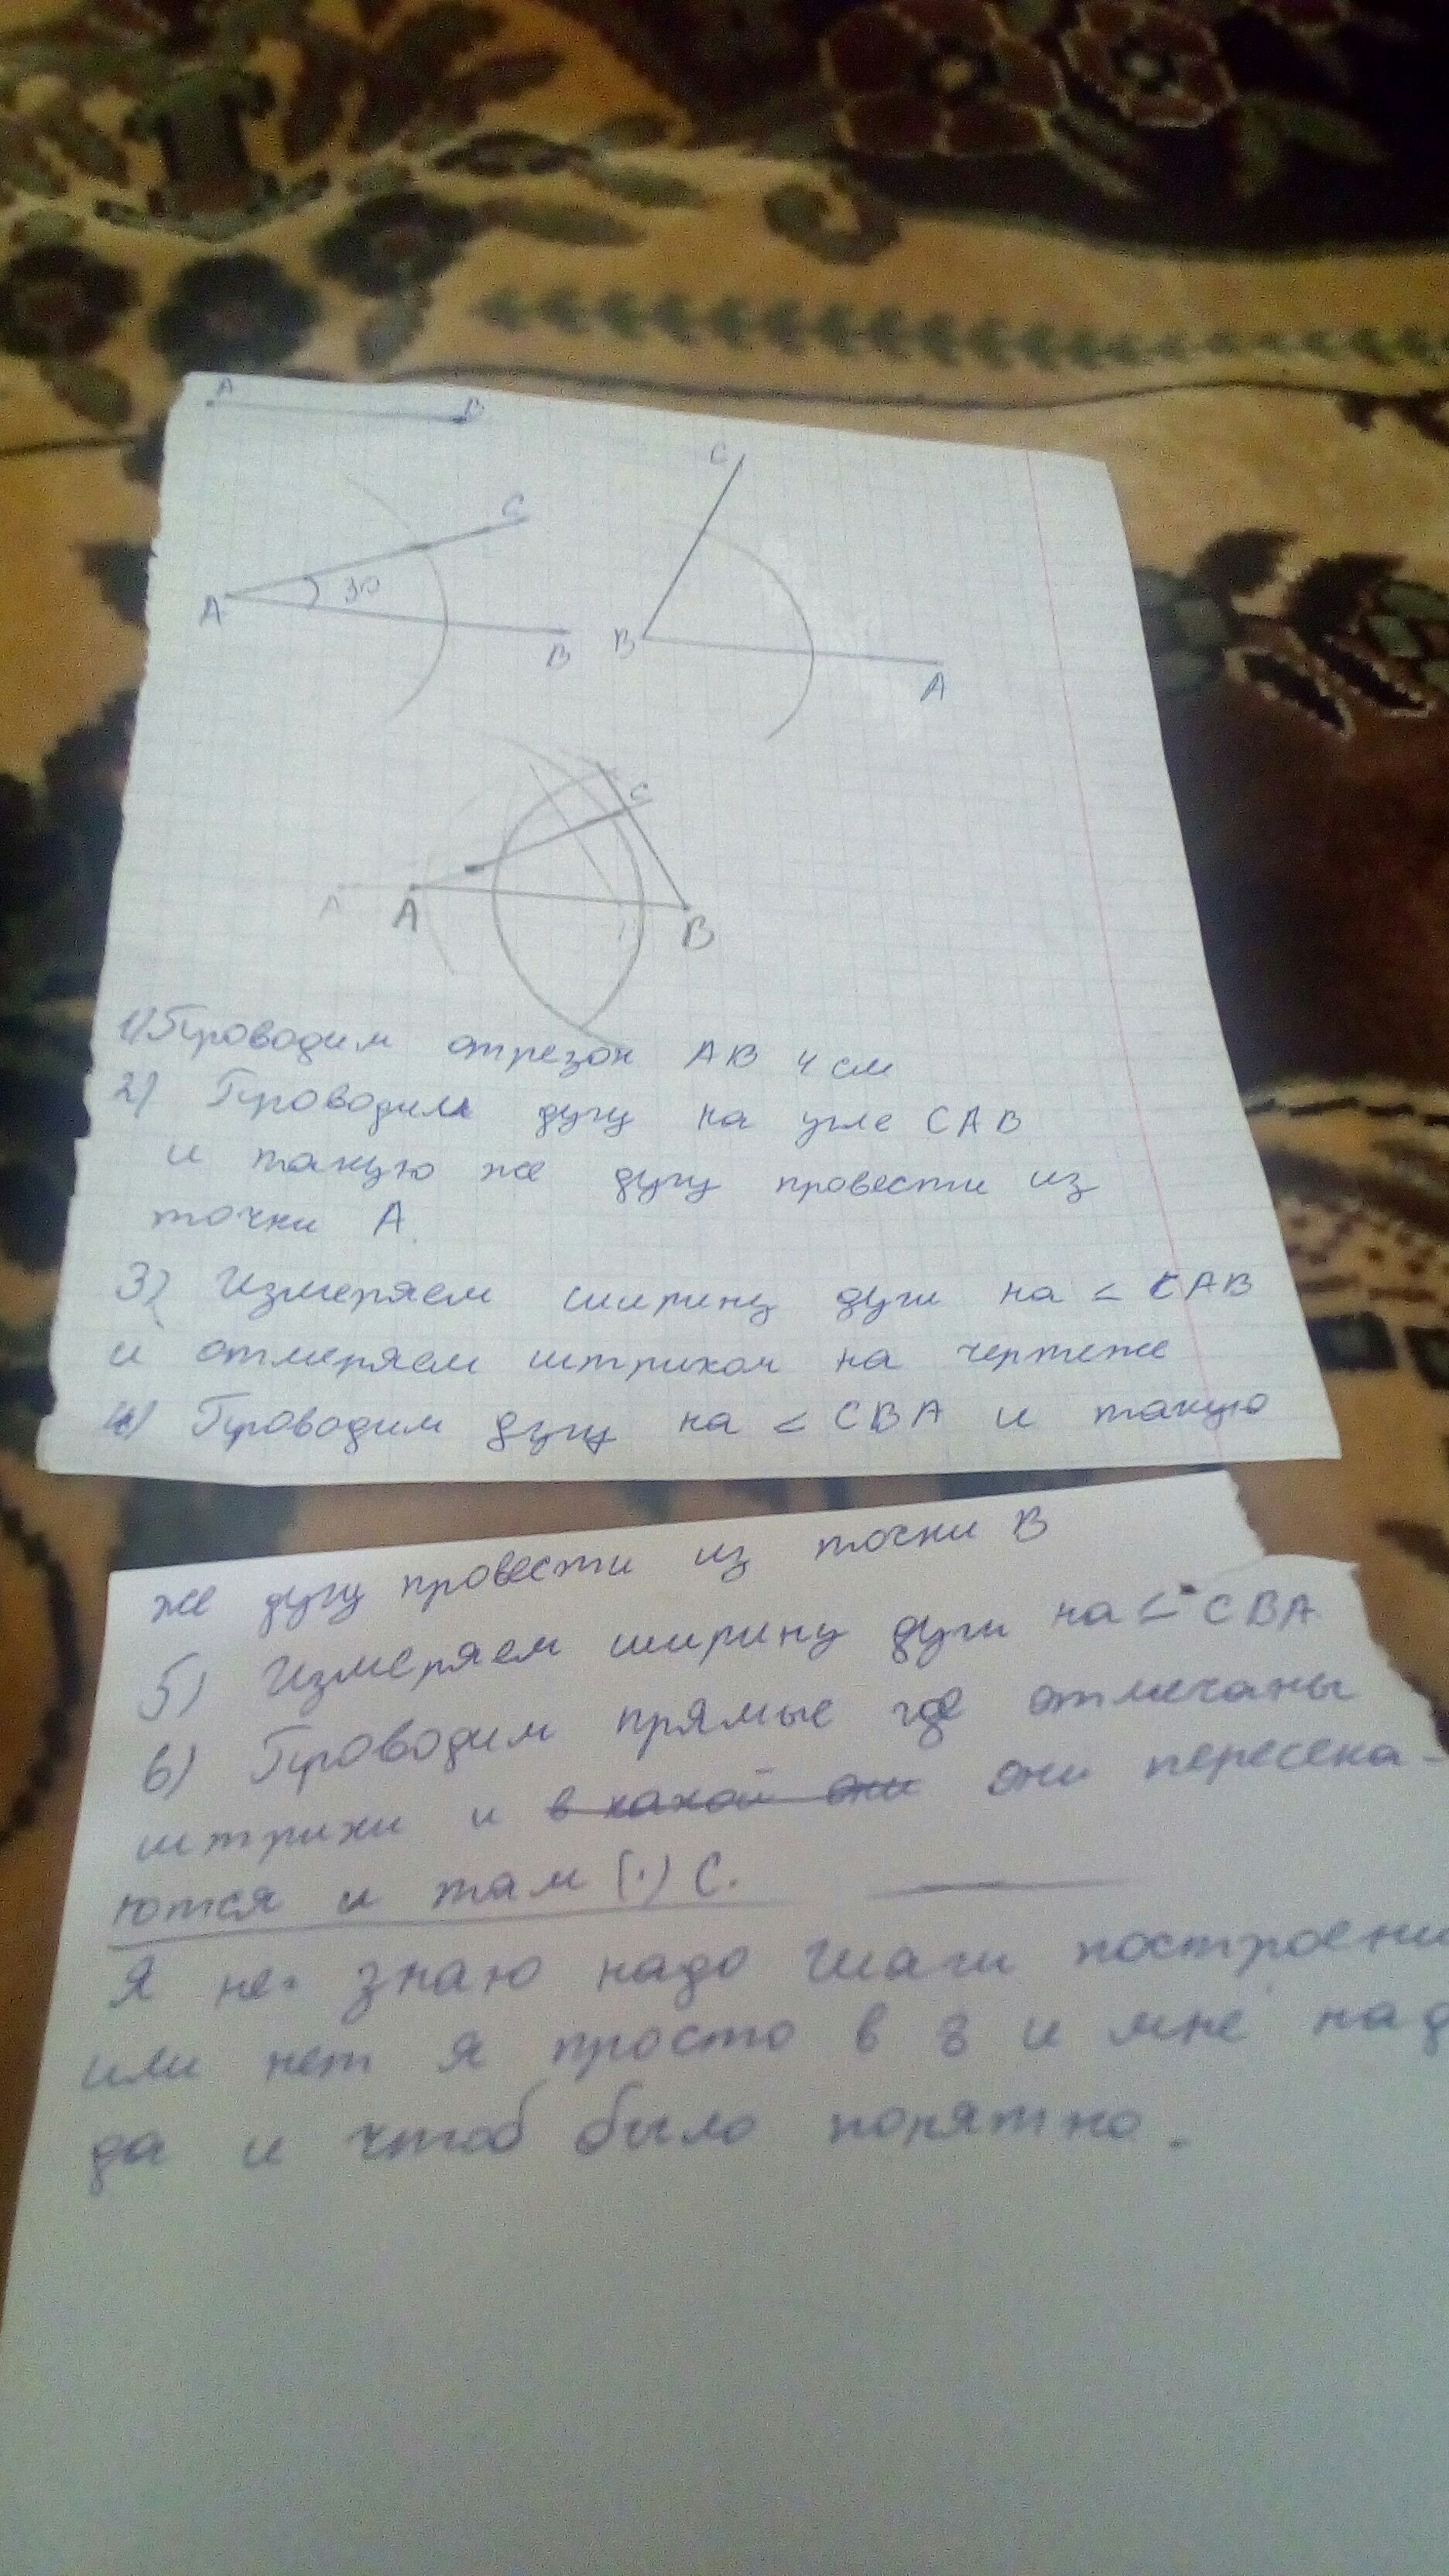 A B
C
C
A 30 B
B A
C
A A B
1) Проводим отрезок АВ 4 см
2) Проводим дугу на угле САВ
и такую же дугу провести из
точки А.
3) Измеряем ширину дуги на < САВ
и отмеряем штрихом на чертеже
4) Проводим дугу на < СВА и такую
же дугу провести из точки В
5) Измеряем ширину дуги на < СВА
6) Проводим прямые где отмечаны
штрихи и в какой они они пересека-
ются и там (·) С.
Я не знаю надо шаги построени
или нет я просто в 8 и мне над
да и чтоб было понятно.